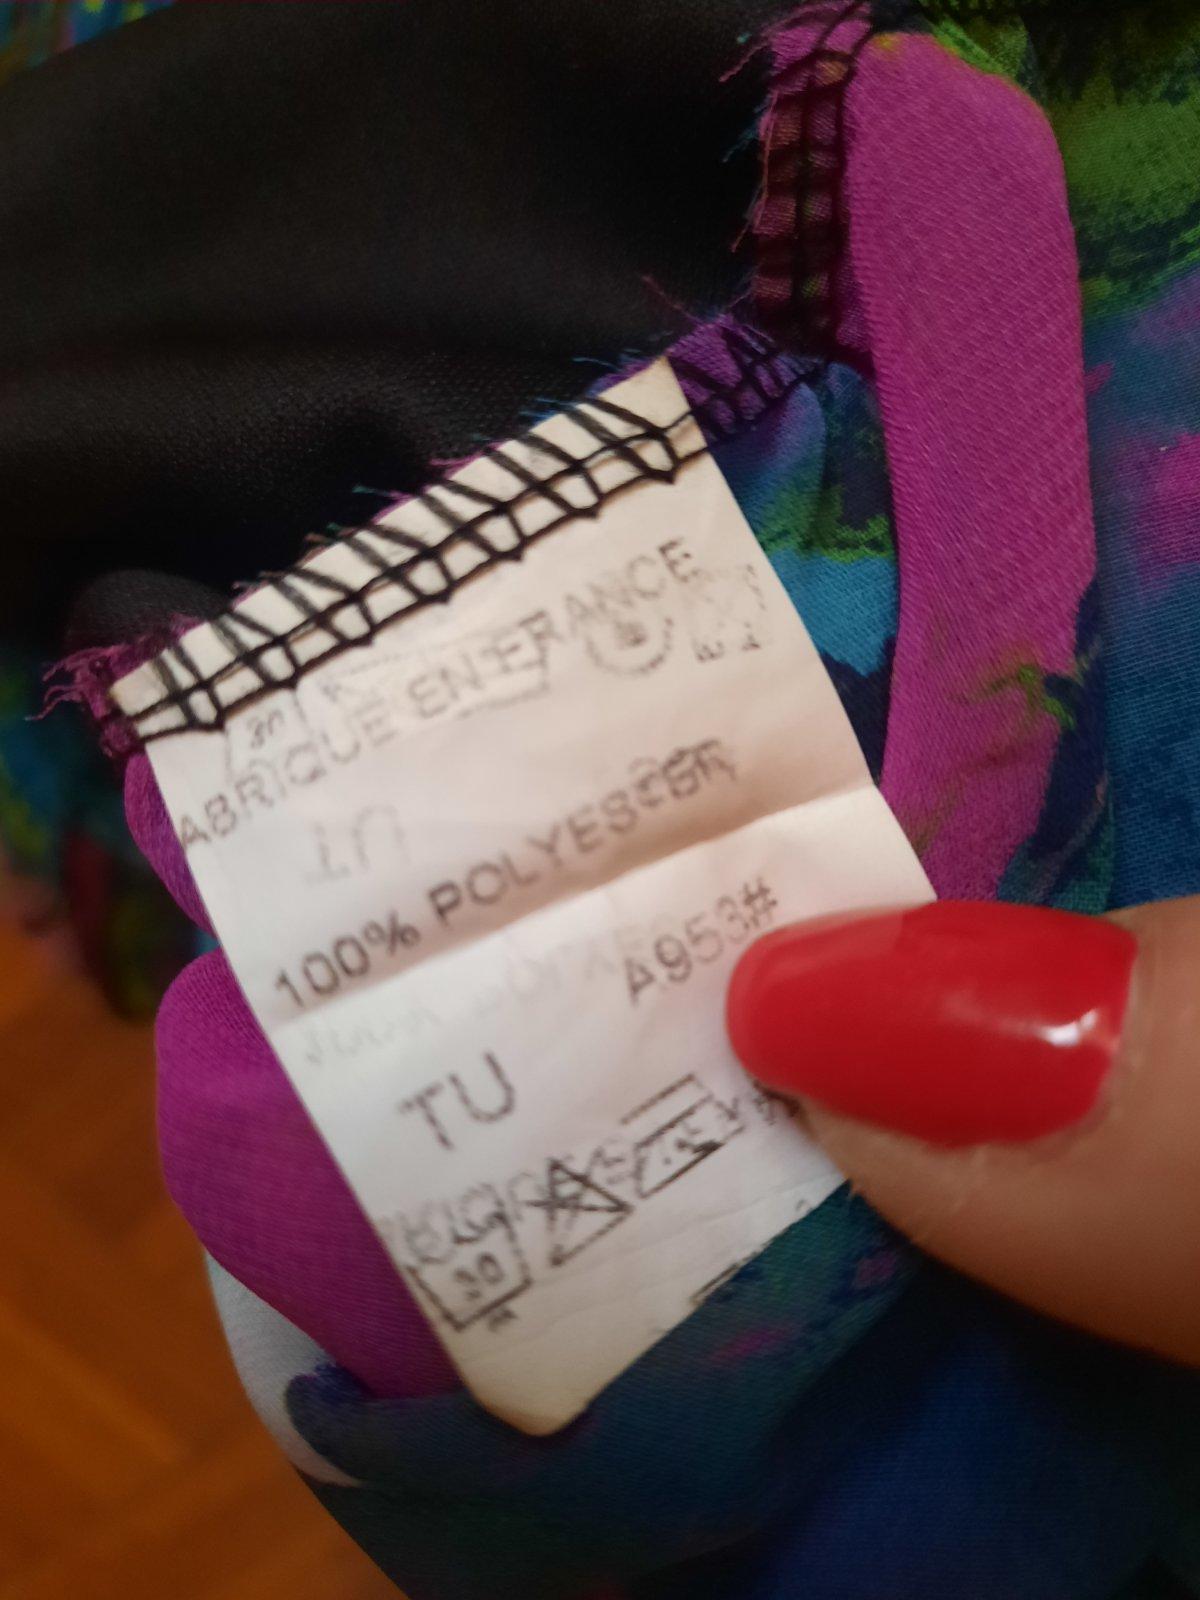 ABRIQUE EN FRANCE
100% POLYESTER
A953#
TU
30